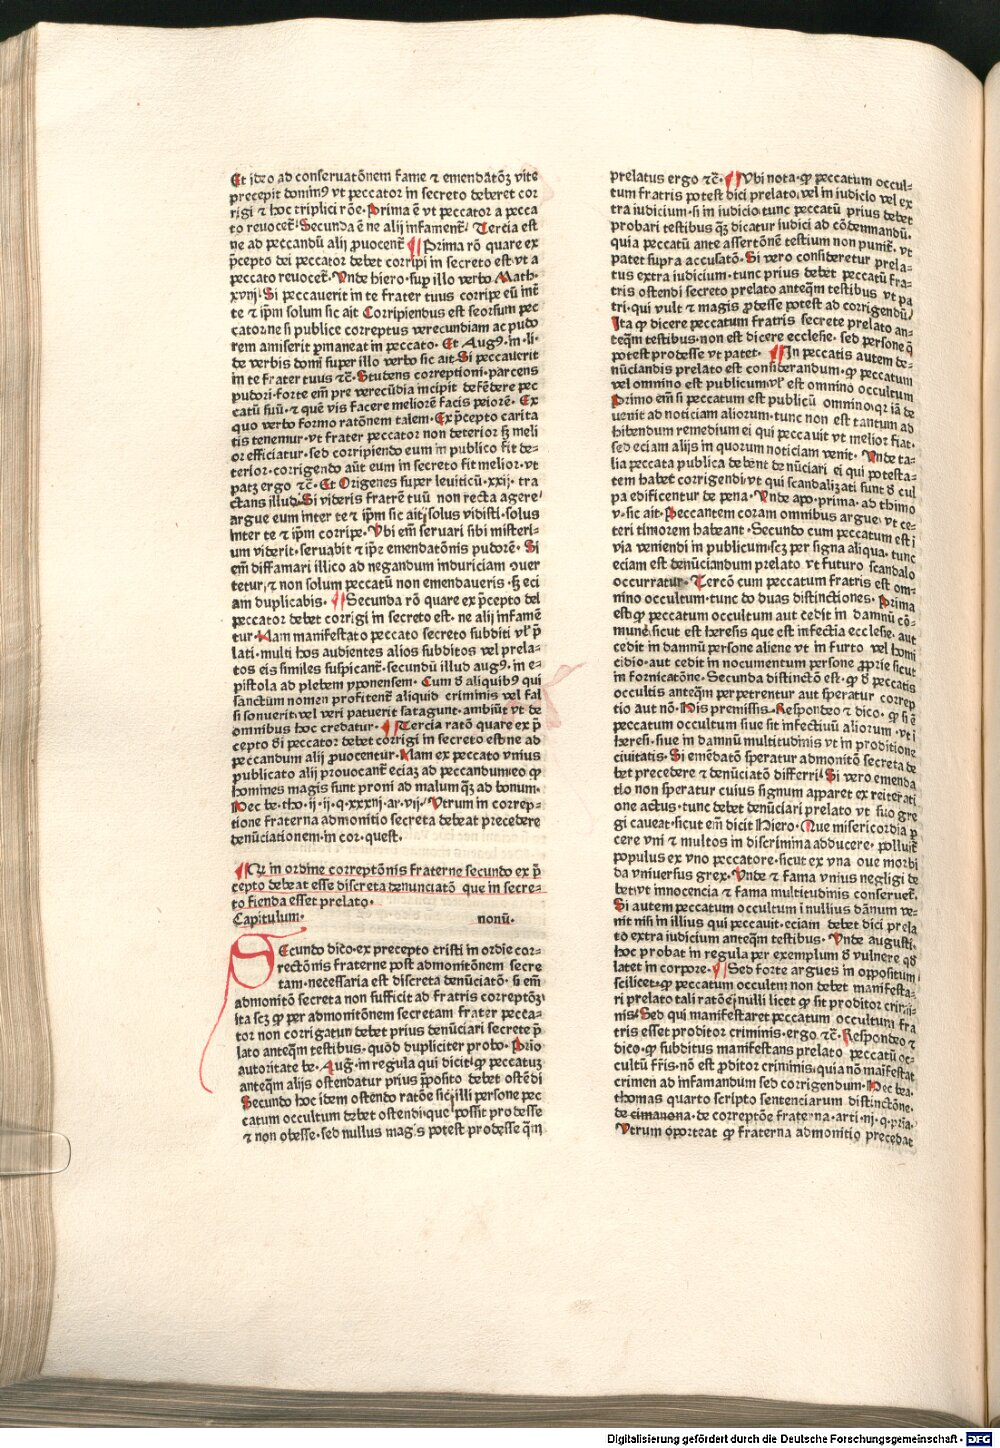 Et ideo ad conseruatōnem fame ⁊ emendatōȝ vite
precepit dominꝰ vt peccator in secreto deberet cor
rigi ⁊ hoc triplici rōe· Prima ē vt peccator a pecca
to reuocet̄· Secunda ē ne alij infament̄· Tercia est
ne ad peccandū alij ꝓuocent̄ ¶ Prima rō quare ex
p̄cepto dei peccator debet corripi in secreto est vt a
peccato reuocet̄· Vnde hiero· sup̱ illo verbo Math·
xviij· Si peccauerit in te frater tuus corripe eū int̄
te ⁊ ip̄m solum sic ait Corripiendus est seorsum pec
cator ne si publice correptus verecundiam ac pudo
rem amiserit ꝑmaneat in peccato· Et Augꝰ· in· li·
de verbis domī super illo verbo sic ait· Si peccauerit
in te frater tuus ⁊c̄· Studens correptioni· parcens
pudori· forte em̄ pre verecūdia incipit defēdere pec
catū suū· ⁊ quē vis facere meliorē facis peiorē· Ex
quo verbo formo ratōnem talem· Ex p̄cepto carita
tis tenemur· vt frater peccator non deterior sꝫ meli
or efficiatur· sed corripiendo eum in publico fit de-
terior· corrigendo aūt eum in secreto fit melior· vt
patꝫ ergo ⁊c̄· Et Origenes super leuiticū· xxij· tra
ctans illud· Si videris fratrē tuū non recta agere
argue eum inter te ⁊ ip̄m sic ait· solus vidisti· solus
inter te ⁊ ip̄m corripe· Vbi em̄ seruari sibi misteri-
um viderit· seruabit ⁊ ip̄e emendatōnis pudorē· Si
em̄ diffamari illico ad negandum induriciam ꝯuer
tetur· ⁊ non solum peccatū non emendaueris· sꝫ eci
am duplicabis· ¶ Secunda rō quare ex p̄cepto dei
peccator debet corrigi in secreto est· ne alij infamē
tur· Nam manifestato peccato secreto subditi vl̄ p̄
lati· multi hos audientes alios subditos vel prela-
tos eis similes suspicant̄· secundū illud augꝰ· in e-
pistola ad plebem yponensem· Cum ꝺ aliquibꝰ qui
sanctum nomen profitent̄ aliquid criminis vel fal
si sonuerit· vel veri patuerit satagunt· ambiūt vt de
omnibus hoc credatur· ¶ Tercia ratō quare ex p̄
cepto ꝺi peccator debet corrigi in secreto est· ne ad
peccandum alij ꝓuocentur· Nam ex peccato vnius
publicato alij prouocant̄ eciaꝫ ad peccandum· eo ꝙ
homines magis sunt proni ad malum qꝫ ad bonum·
Hec be· tho· ij· ij· q· xxxiij· ar· vij· Vtrum in correp-
tione fraterna admonitio secreta debeat precedere
denūciationem· in cor· quest·
¶ Qꝛ in ordine correptōnis fraterne secundo ex p̄
cepto debeat esse discreta denunciatō que in secre-
to fienda esset prelato·
Capitulum· nonū·
SEcundo dico· ex precepto cristi in ordie cor-
rectōnis fraterne post admonitōnem secre
tam· necessaria est discreta denūciatō· si em̄
admonitō secreta non sufficit ad fratris correptōꝫ
ita scꝫ ꝙ per admonitōnem secretam frater pecca-
tor non corrigatur· debet prius denūciari secrete p̄
lato anteqm̄ testibus· quōd dupliciter probo· Prīo
autoritate be· Auḡ· in regula qui dicit· ꝙ peccatuꝫ
anteqm̄ alijs ostendatur prius p̄posito debet ostēdi
Secundo hoc idem ostendo ratōe sic· illi persone pec
catum occultum debet ostendi· que possit prodesse
⁊ non obesse· sed nullus magis potest prodesse qm̄
prelatus ergo ⁊c̄· ¶ Vbi nota· ꝙ peccatum occul-
tum fratris potest dici prelato· vel in iudicio vel ex
tra iudicium· si in iudicio· tunc peccatū prius debet
probari testibus qꝫ dicatur iudici ad cōdemnandū·
quia peccatū ante assertōnē testium non punit̄· vt
patet supra accusatō· Si vero consideretur prela-
tus extra iudicium· tunc prius debet peccatū fra-
tris ostendi secreto prelato anteqm̄ testibus vt pa
tri· qui vult ⁊ magis ꝓdesse potest ad corrigendū·
Ita ꝙ dicere peccatum fratris secrete prelato an-
teqm̄ testibus· non est dicere ecclesie· sed persone q̄
potest prodesse vt patet· ¶ In peccatis autem de-
nūciandis prelato est considerandum· ꝙ peccatum
vel omnino est publicum· vl̄ est omnino occultum
Primo em̄ si peccatum est publicū omnino· qꝛ iā de
uenit ad noticiam aliorum· tunc non est tantum ad
hibendum remedium ei qui peccauit vt melior fiat·
sed eciam alijs in quorum noticiam venit· Vnde ta-
lia peccata publica debent denūciari ei qui potesta-
tem habet corrigendi· vt qui scandalizati sunt ꝺ cul
pa edificentur de pena· Vnde apo· prima· ad thimo
v· sic ait· Peccantem coram omnibus argue· vt ce-
teri timorem habeant· Secundo cum peccatum est ī
via veniendi in publicum· scꝫ per signa aliqua· tunc
eciam est denūciandum prelato vt futuro scandalo
occurratur· Tercō cum peccatum fratris est om-
nino occultum· tunc do duas distinctiones· Prima
est· ꝙ peccatum occultum aut cedit in damnū cō-
mune· sicut est heresis que est infectia ecclesie· aut
cedit in damnū persone aliene vt in furto vel homi
cidio· aut cedit in nocumentum persone ꝓprie sicut
in fornicatōne· Secunda distinctō est· ꝙ ꝺ peccatis
occultis anteqm̄ perpetrentur aut speratur correp
tio aut nō· His premissis· Respondeo ⁊ dico· ꝙ si ē
peccatum occultum siue sit infectiuū aliorum· vt ī
heresi· siue in damnū multitudinis vt in proditione
ciuitatis· Si emēdatō speratur admonitō secreta de
bet precedere ⁊ denūciatō differri· Si vero emenda
tio non speratur cuius signum apparet ex reiterati
one actus· tunc debet denūciari prelato vt suo gre
gi caueat· sicut em̄ dicit Hiero· Que misericordia p̱
cere vni ⁊ multos in discrimina adducere· polluit̄
populus ex vno peccatore· sicut ex vna oue morbi
da vniuersus grex· Vnde ⁊ fama vnius negligi de
bet· vt innocencia ⁊ fama multitudinis conseruet̄·
Si autem peccatum occultum ī nullius dānum ve-
nit nisi in illius qui peccauit· eciam debet dici prela
to extra iudicium anteqm̄ testibus· Vnde augusti·
hoc probat in regula per exemplum ꝺ vulnere qꝺ
latet in corpore· ¶ Sed forte argues in oppositum
scilicet· ꝙ peccatum occultm non debet manifesta-
ri prelato tali ratōe· nulli licet ꝙ sit proditor crimi-
nis· Sed qui manifestaret peccatum occultum fra
tris esset proditor criminis· ergo ⁊c̄· Respondeo ⁊
dico· ꝙ subditus manifestans prelato peccatū oc-
cultū fris· nō est ꝓditor criminis· quia nō māifestat
crimen ad infamandum sed corrigendum· Hec bea·
thomas quarto scripto sentenciarum distinctōne·
de cimanona· de correptōe fraterna· arti· iij· q· prīa·
Vtrum oporteat ꝙ fraterna admonitio precedat
Digitalisierung gefördert durch die Deutsche Forschungsgemeinschaft - DFG